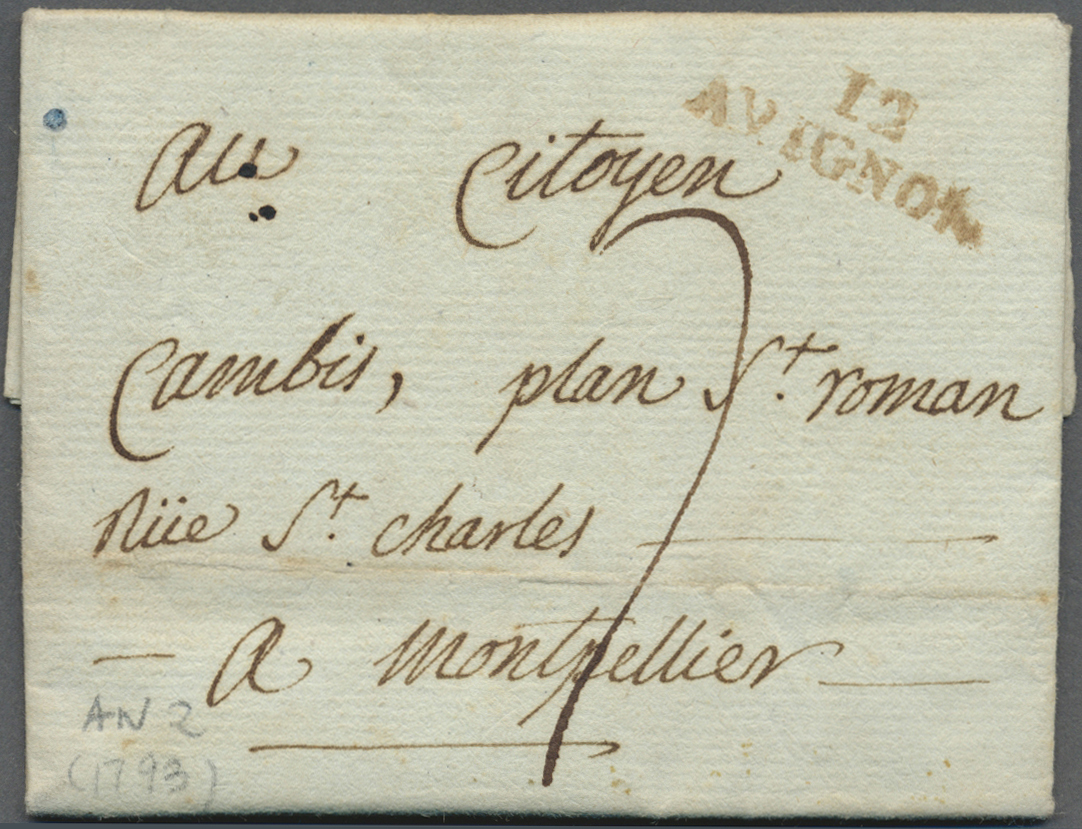 12
AVIGNON
Au Citoyen
Cambis, plan St. roman
Rüe St. charles
A Montpellier
7
AN 2
(1793)